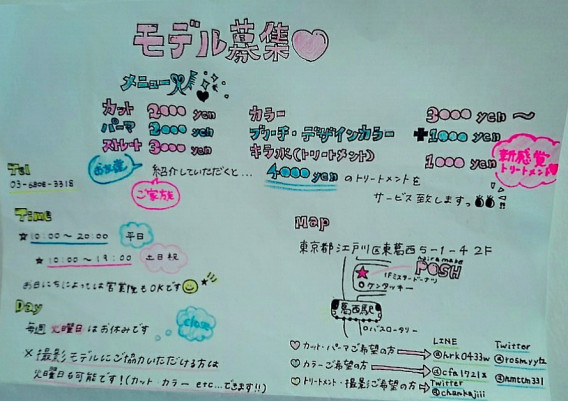 モデル募集
メニュー
カット 2000 yen
パーマ 2000 yen
ストレート 3000 yen
カラー 3000 yen 〜
ブリーチ・デザインカラー +1000 yen
キラ水(トリートメント) 1000 yen
新感覚
トリートメント
お友達
ご家族
紹介していただくと… 4000 yen のトリートメントを
サービス致しますっ!!
Tel
03-6808-3318
Time
☆10:00〜20:00 平日
☆10:00〜19:00 土日祝
お日にちによっては営業後もOKです
Day
毎週 火曜日はお休みです
close
※撮影モデルにご協力いただける方は
火曜日も可能です!(カット カラー etc...できます!!)
Map
東京都江戸川区東葛西5-1-4 2F
hair make
POSH
1Fミスタードーナツ
ケンタッキー
葛西駅
バスロータリー
LINE Twitter
♡カット・パーマご希望の方 @hrk0433w
♡カラーご希望の方 @cfa1721x @nmttm331
♡トリートメント・撮影ご希望の方 Twitter
@chankajiii